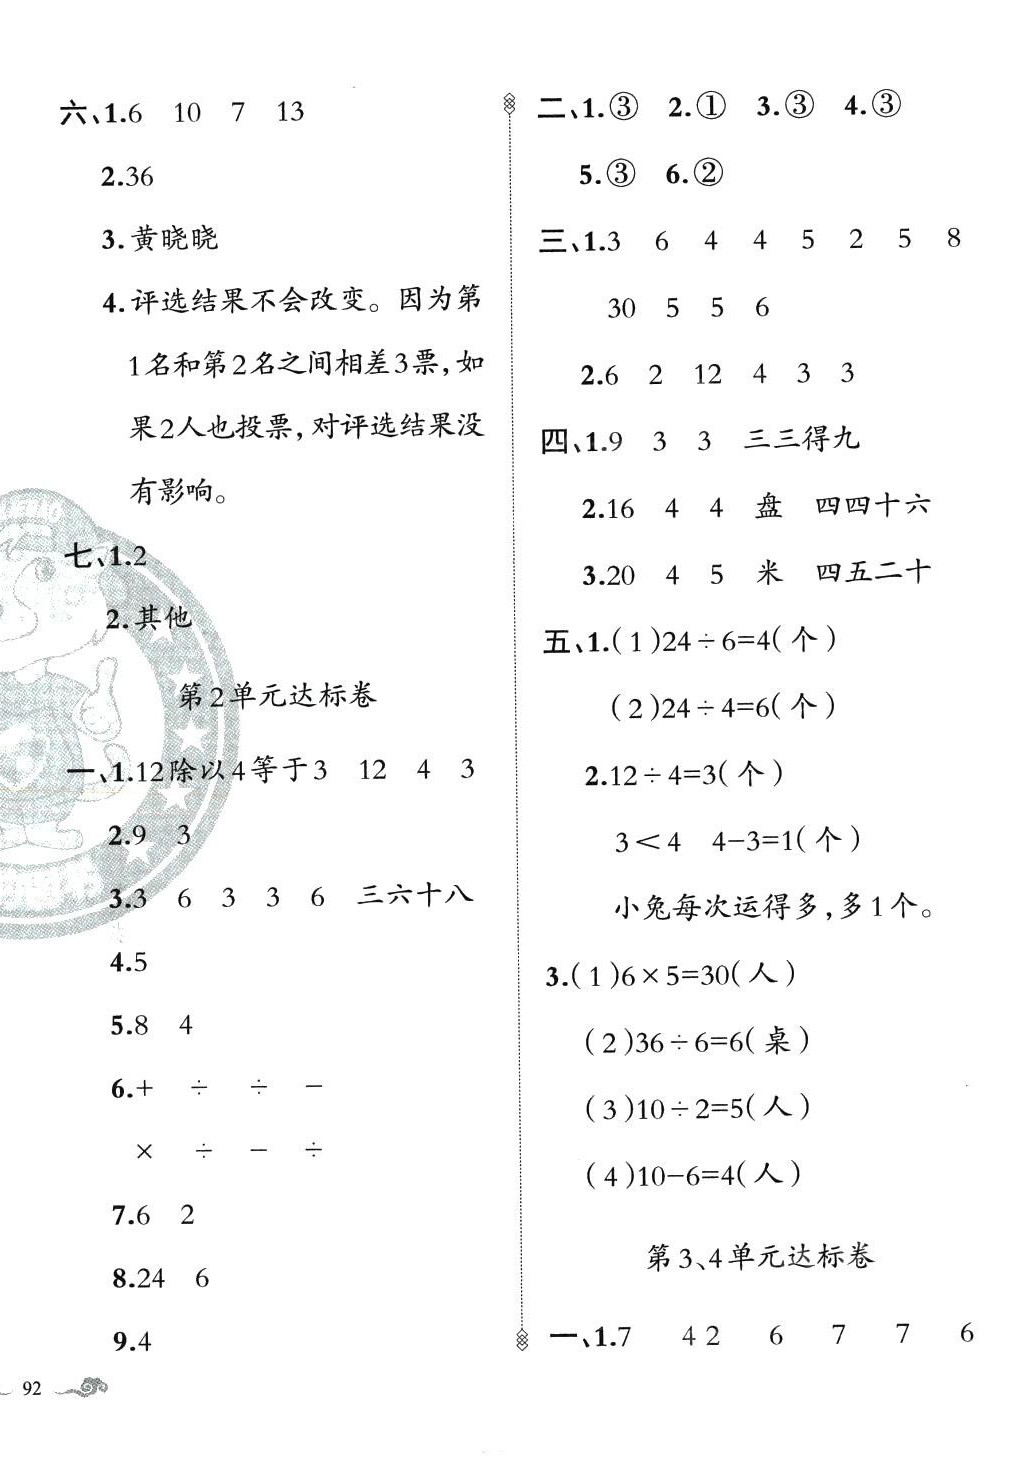 六、1.6 10 7 13
2.36
3.黄晓晓
4.评选结果不会改变。因为第
1名和第2名之间相差3票,如
果2人也投票,对评选结果没
有影响。
七、1.2
2.其他
第2单元达标卷
一、1.12除以4等于3 12 4 3
2.9 3
3.3 6 3 3 6 三六十八
4.5
5.8 4
6.+ ÷ ÷ −
× ÷ − ÷
7.6 2
8.24 6
9.4
92
二、1.③ 2.① 3.③ 4.③
5.③ 6.②
三、1.3 6 4 4 5 2 5 8
30 5 5 6
2.6 2 12 4 3 3
四、1.9 3 3 三三得九
2.16 4 4 盘 四四十六
3.20 4 5 米 四五二十
五、1.(1)24÷6=4(个)
(2)24÷4=6(个)
2.12÷4=3(个)
3<4 4−3=1(个)
小兔每次运得多,多1个。
3.(1)6×5=30(人)
(2)36÷6=6(桌)
(3)10÷2=5(人)
(4)10−6=4(人)
第3、4单元达标卷
一、1.7 42 6 7 7 6